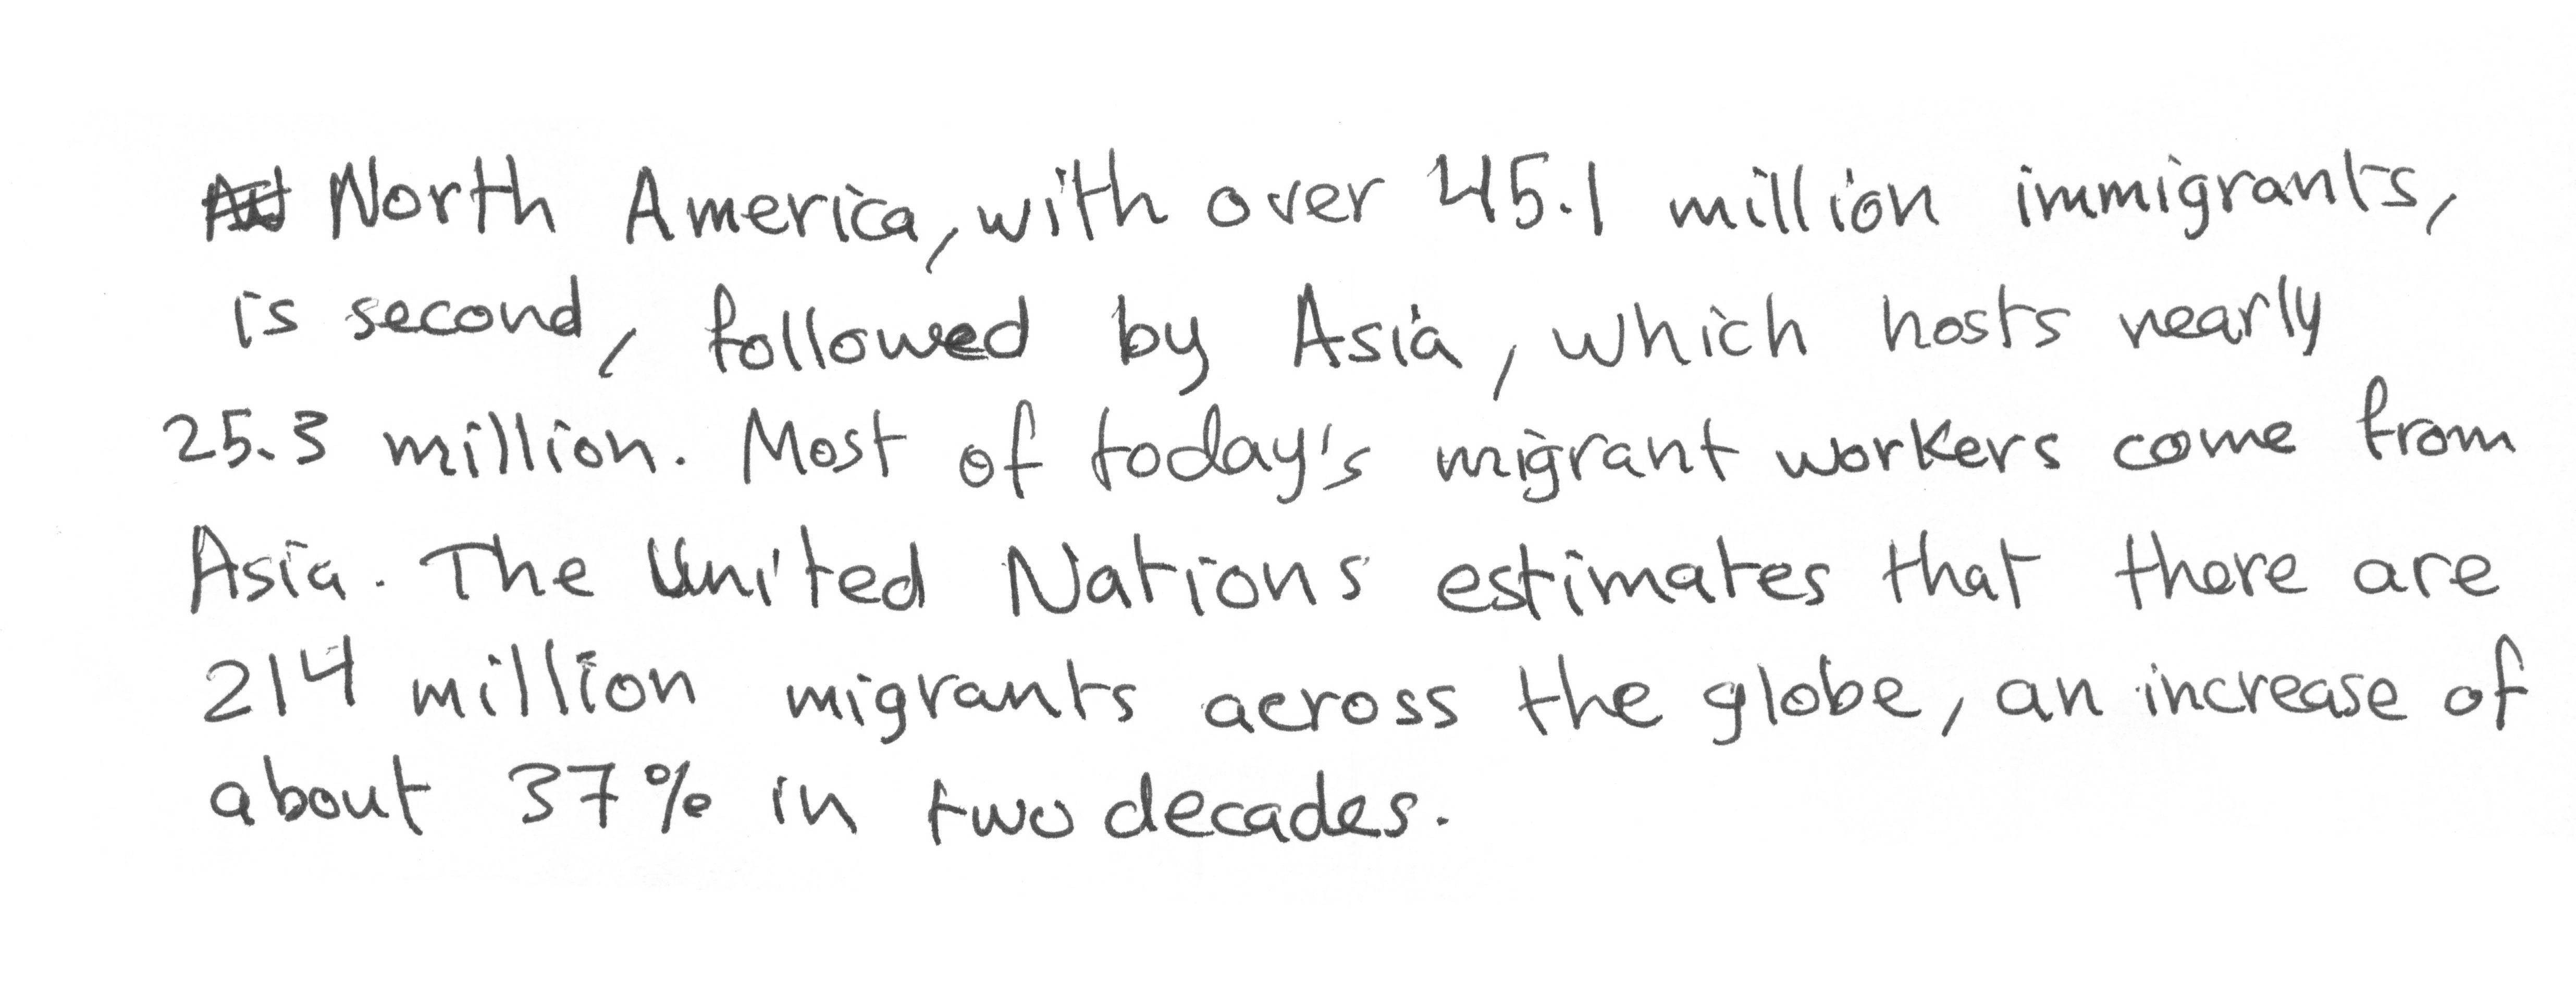 North America, with over 45.1 million immigrants,
is second, followed by Asia, which hosts nearly
25.3 million. Most of today's migrant workers come from
Asia. The United Nations estimates that there are
214 million migrants across the globe, an increase of
about 37% in two decades.